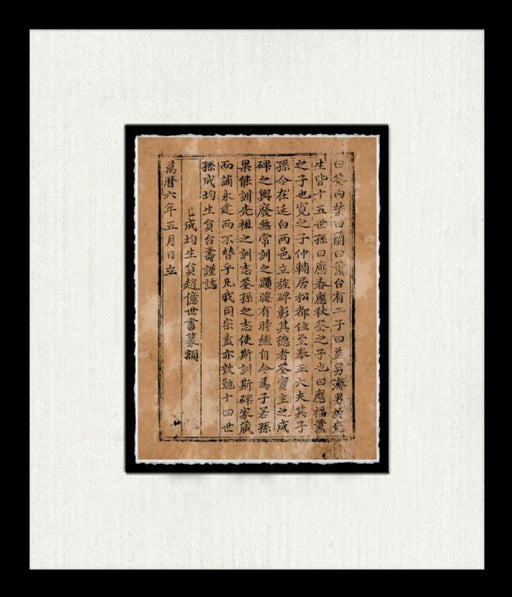 曰荃曰葉曰蘭曰薰台有二子曰益男濟男
生皆十五世孫曰應春應秋荃之子也曰應福薰
之子也寬之子仲輔居松都位至泰正大夫其子
孫今在延白兩邑立旌碑彰其德者荃實主之成
碑之興廢無常訓之顯晦有時繼自今爲子若孫
果能訓先祖之訓志荃孫之志使斯訓斯碑家藏
而誦永建而不替乎凡我同宗盍亦敬勉十四世
孫成均生員台壽謹誌
成均生員趙憶世書篆額
萬曆六年五月日立